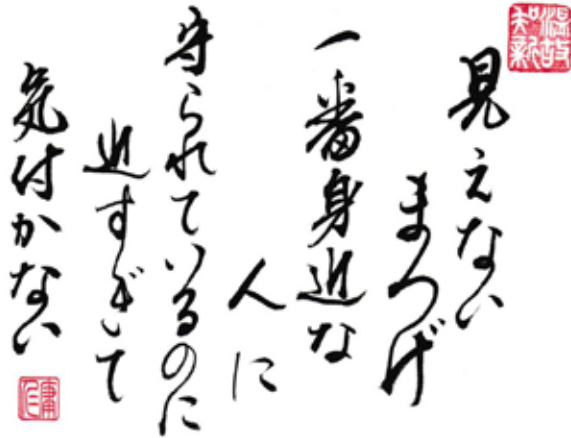 温故知新
見えない
まつげ
一番身近な
人に
守られているのに
近すぎて
気付かない